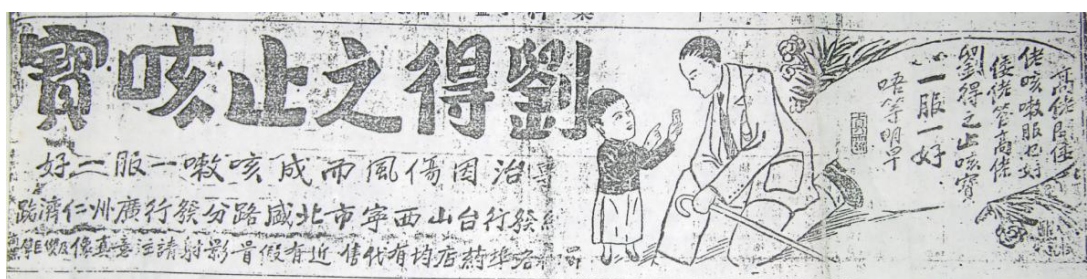 劉得之止咳寶
專治因傷風而成咳嗽一服一好
發行台山西寧市北盛路分發行廣州仁濟路
各埠葯店均有代售 近有假冒影射請注意真像
高佬問倭
佬咳嗽服乜好
倭佬答高佬
劉得之止咳寶
一服一好
唔等明早